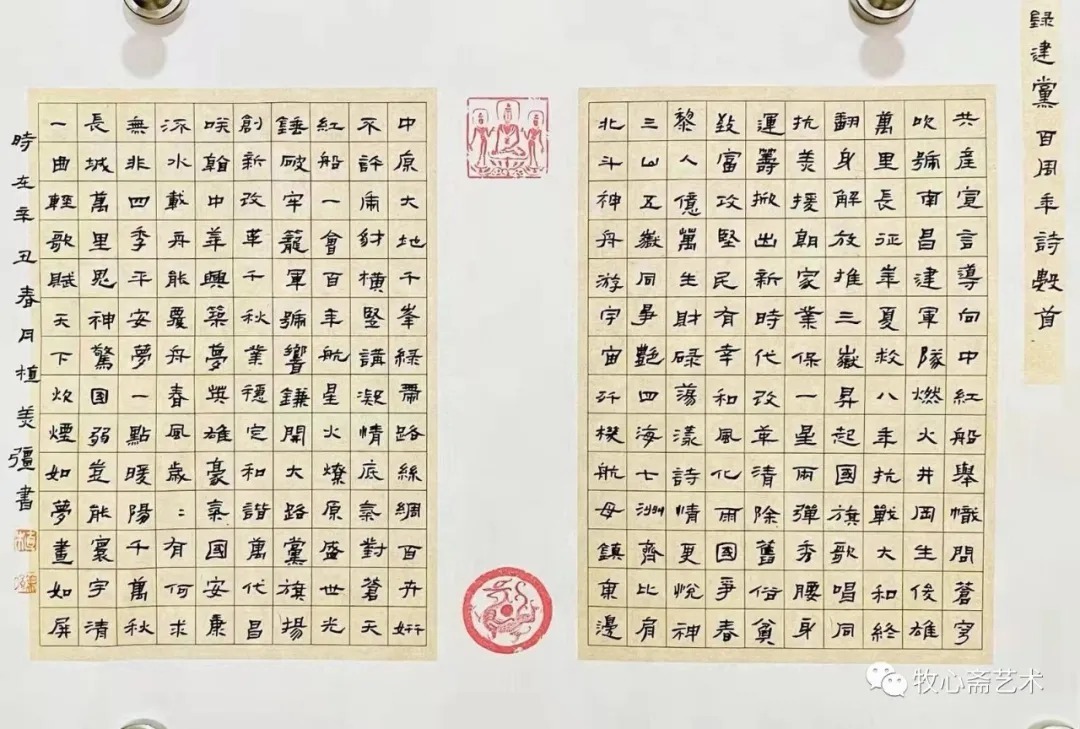 錄建黨百周年詩數首
共產宣言導向中紅船舉幟問蒼穹
吹號南昌建軍隊燃火井岡生俊雄
萬里長征華夏救八年抗戰大和終
翻身解放推三嶽昇起國旗歌唱同
抗美援朝家業保一星兩彈秀腰身
運籌掀出新時代改革清除舊俗貧
致富攻堅民有幸和風化雨國爭春
黎人億萬生財碌蕩漾詩情更悅神
三山五嶽同爭艷四海七洲齊比肩
北斗神舟游宇宙歼機航母鎮東邊
中原大地千峯綠帶路絲綢百卉妍
不許豺橫豎講凝情底氣對蒼天
紅船一會百年航星火燎原盛世光
錘破牢籠軍號響鐮開大路黨旗揚
創新改革千秋業穩定和諧萬代昌
中華興築夢英雄豪氣國安康
水載舟能覆舟春風歲〻有何求
無非四季平安夢一點暖陽千萬秋
長城萬里鬼神驚國弱豈能寰宇清
一曲輕歌賦天下炊煙如夢畫如屏
時在辛丑春月植美彊書
牧心斋艺术